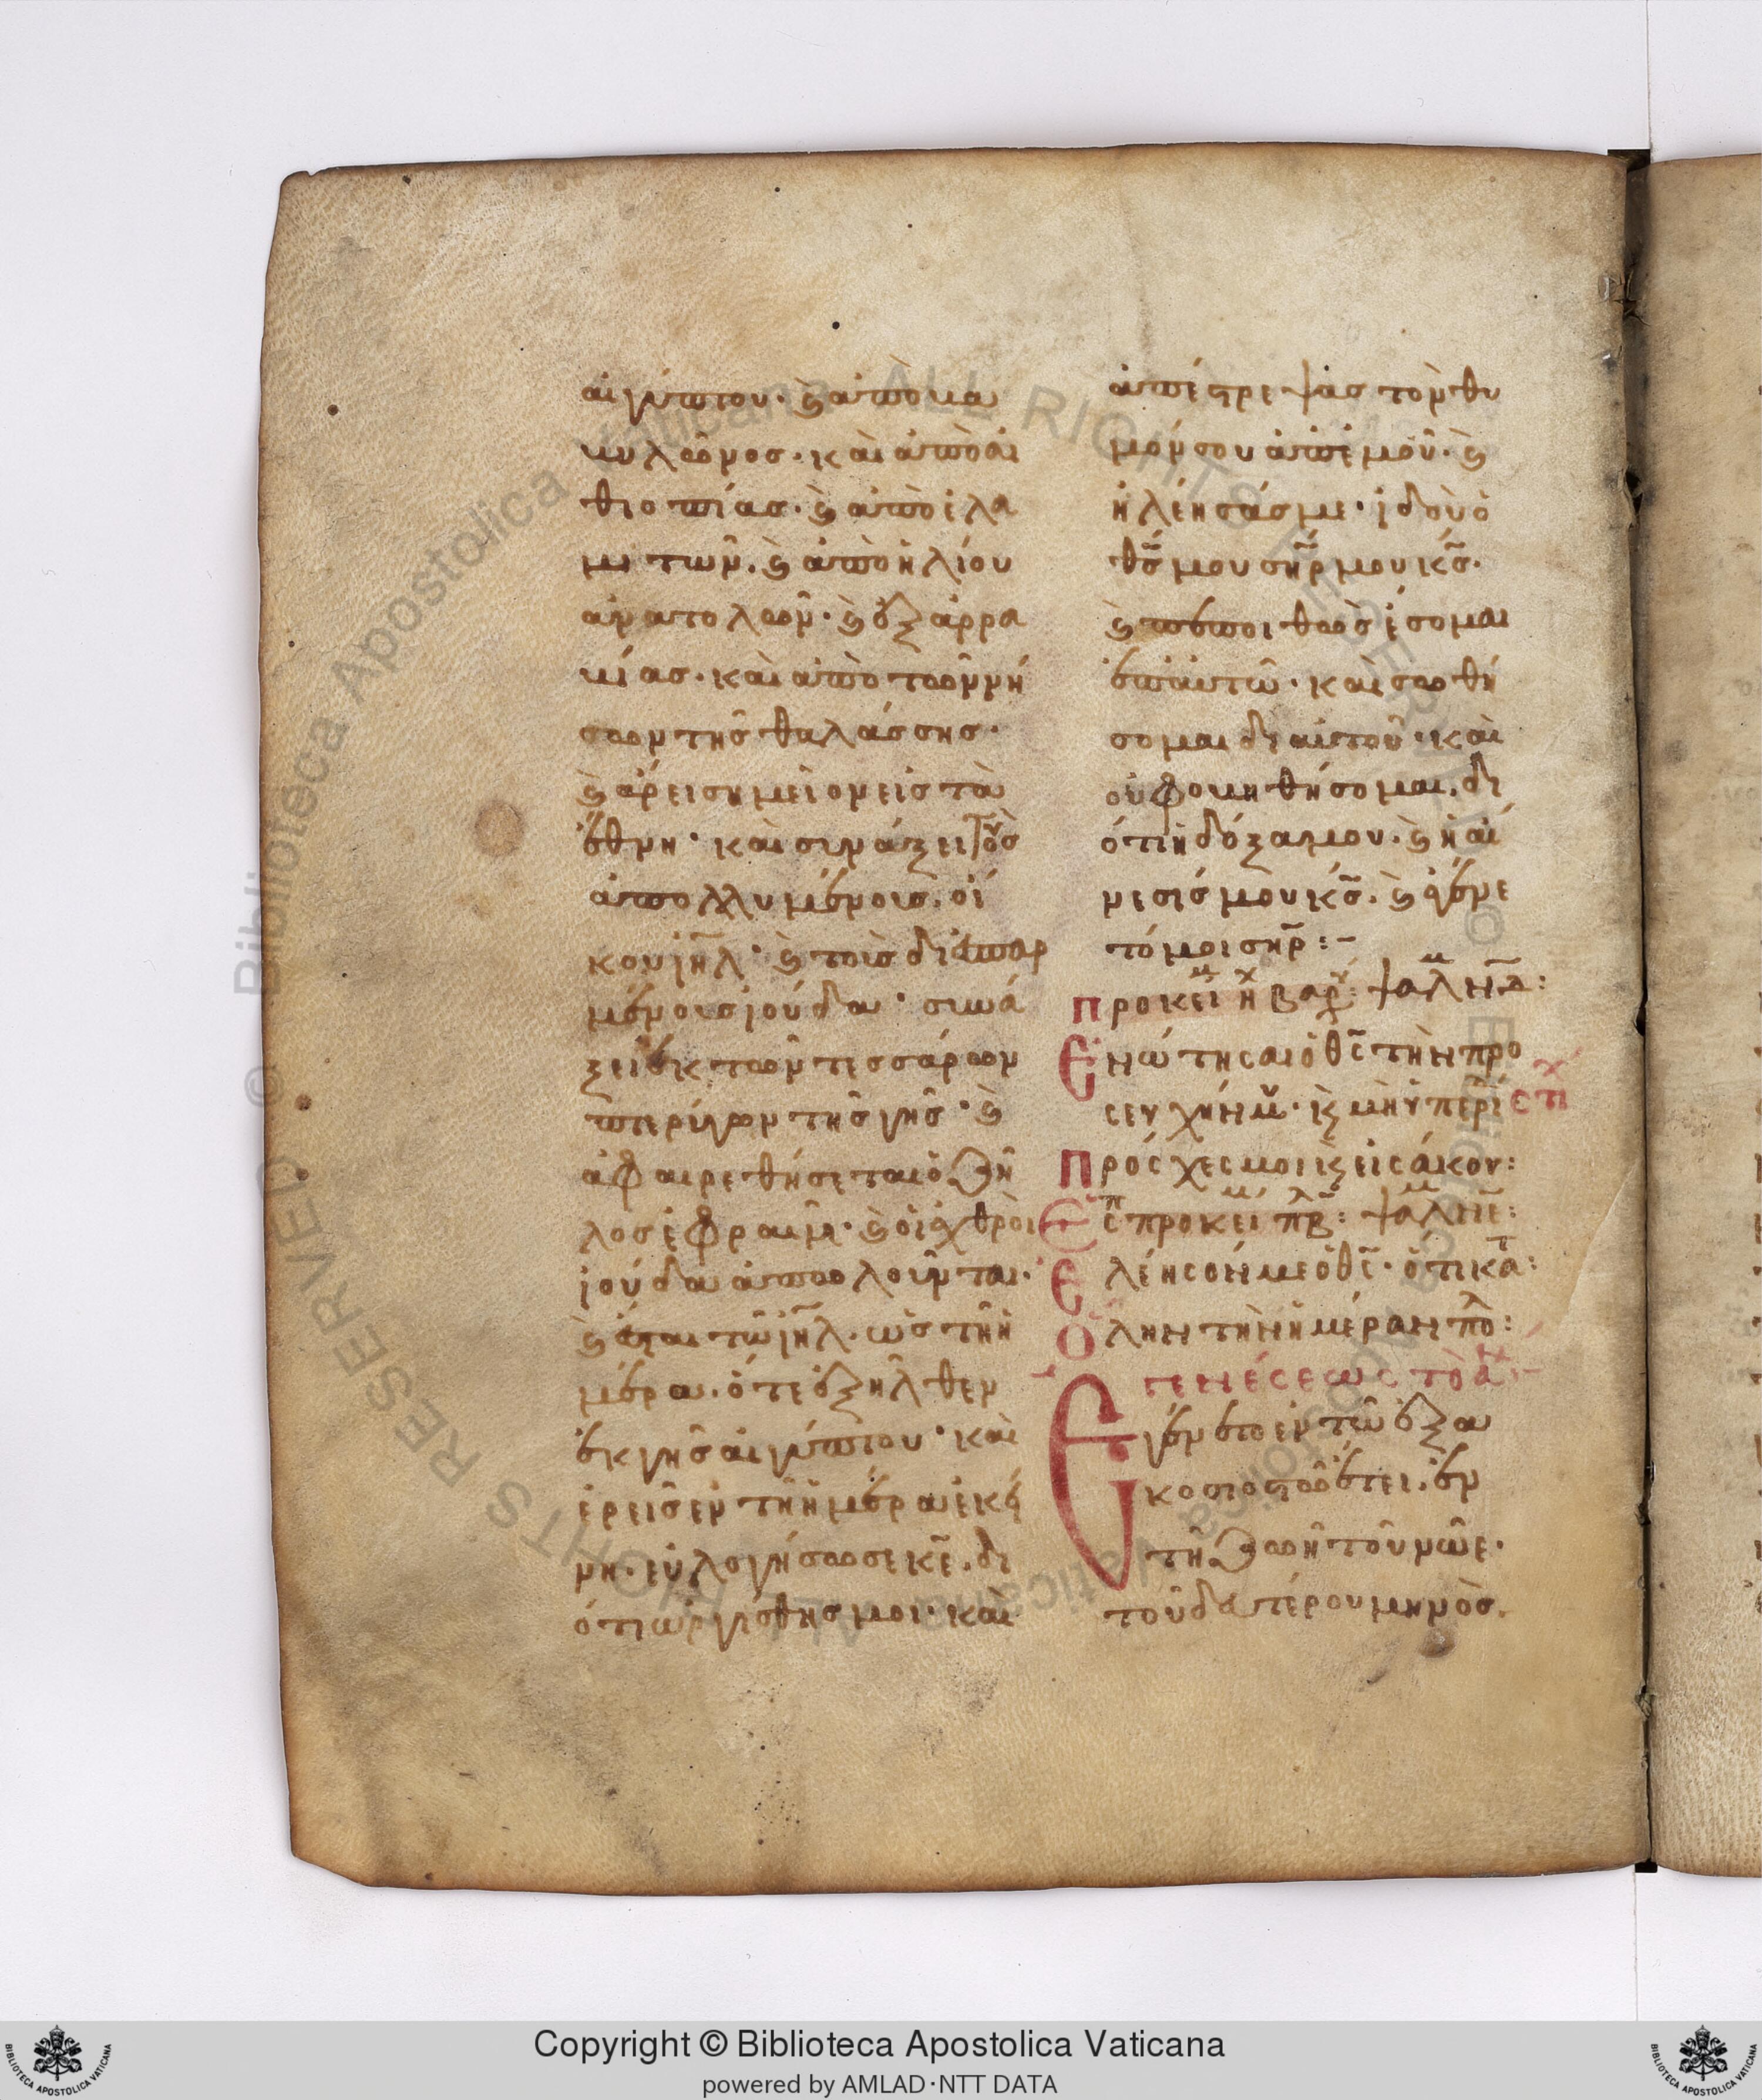 αἰγύπτου· ϗ ἀπὸ βα
βυλῶνος· καὶ ἀπὸ αἰ
θιοπίας· ϗ ἀπὸ ἐλα
μιτῶν· ϗ ἀπὸ ἡλίου
ἀνατολῶν· ϗ ἐξ ἀρρα
βίας· καὶ ἀπὸ τῶν νή
σων τῆς θαλάσσης·
ϗ ἀρεῖ σημεῖον εἰς τὰ
ἔθνη· καὶ συνάξει τοὺς
ἀπολλυμένους· οἴ
κου ιη̅λ· ϗ τοὺς διεσπαρ
μένους ἰούδα· συνά
ξει ἐκ τῶν τεσσάρων
πτερύγων τῆς γῆς· ϗ
ἀφαιρεθήσεται ὁ ζῆ
λος ἐφραὶμ· ϗ οἱ ἐχθροὶ
ἰούδα ἀπολοῦνται·
ϗ ἔσται τῷ ιη̅λ· ὡς τῆ ἡ
μέρα· ὅτε ἐξῆλθεν
ἐκ γῆς αἰγύπτου· καὶ
ἐρεῖς ἐν τῆ ἡμέρα ἐκεί
νη· εὐλογήσω σε κε̅· δι
ότι ὠργίσθης μοι· καὶ
ἀπέστρεψας τὸν θυ
μόν σου ἀπ' ἐμοῦ· ϗ
ἠλέησάς με· ἰδοὺ ὁ
θς̅ μου σηρ̅ μου κς̅·
ϗ πεποιθὼς ἔσομαι
ἐπ' αὐτῶ· καὶ σωθή
σομαι δι' αὐτοῦ· καὶ
οὐ φοβηθήσομαι· δι
ότι ἡ δόξα μου· ϗ ἡ αἴ
νεσίς μου κς̅· ϗ ἐγένε
τό μοι σηρ̅:-
προκει μ ἦχ βαρ: ψαλμ νδ:
Ἐνώτησαι ὁ θς̅ τὴν προ
σευχήν μου· ϗ μὴ ὑπερί στι χ
Πρόσχες μοι ϗ εἰσάκου:
Ἑσπ προκει μ πλ β: ψαλμ νε:
Ἐλέησόν με ὁ θς̅· ὅτι κατ:
Ὅλην τὴν ἡμέραν πολ:
γενέσεως τὸ ἀν
Ἐγένετο ἐν τῶ ἑξα
κοσιοστῶ ἔτει· ἐν
τῆ ζωῆ τοῦ νῶε·
τοῦ δευτέρου μηνὸς.
Copyright © Biblioteca Apostolica Vaticana
powered by AMLAD·NTT DATA